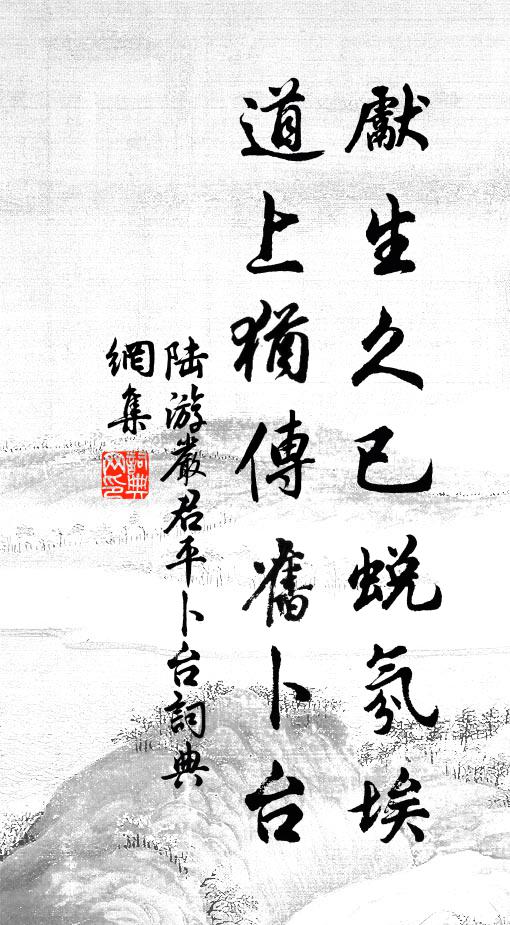 獻生久已蛻氛埃
道上猶傳舊卜台
陆游嚴君平卜台詞典
網集
詞典
网印